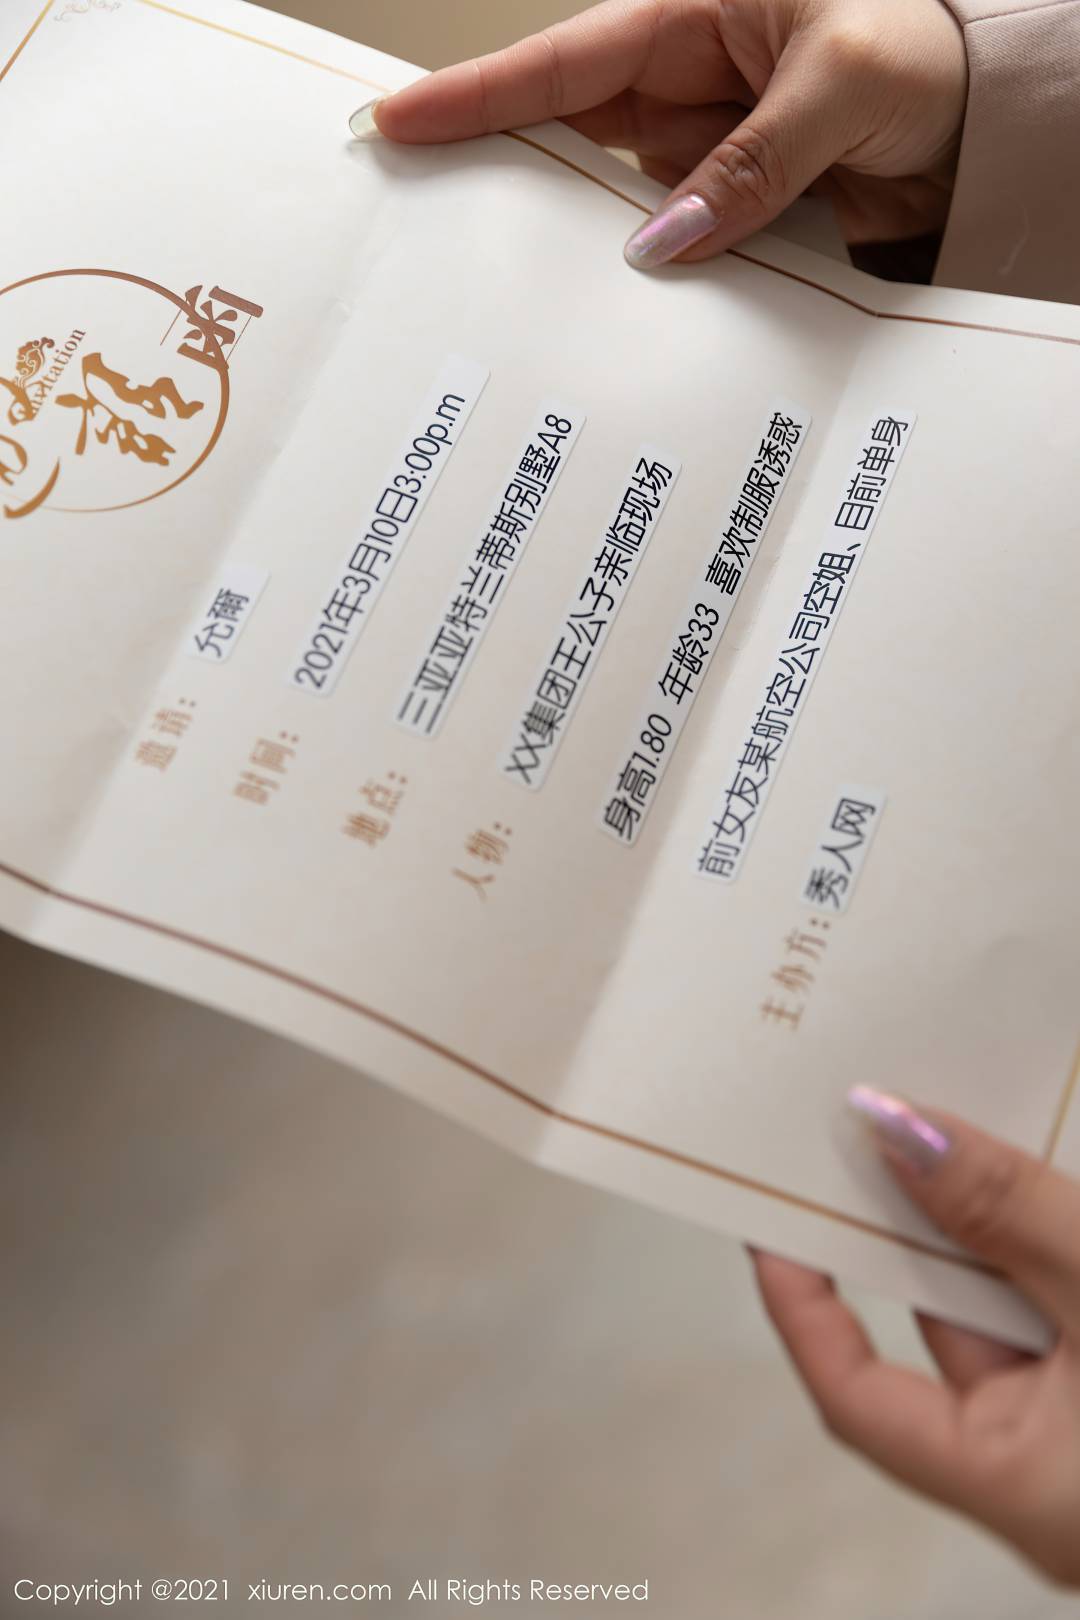 邀请函
Invitation
邀请：允爾
时间：2021年3月10日3:00p.m
地点：三亚亚特兰蒂斯别墅A8
人物：XX集团王公子亲临现场
身高1.80 年龄33 喜欢制服诱惑
前女友某航空公司空姐、目前单身
主办方：秀人网
Copyright @2021 xiuren.com All Rights Reserved